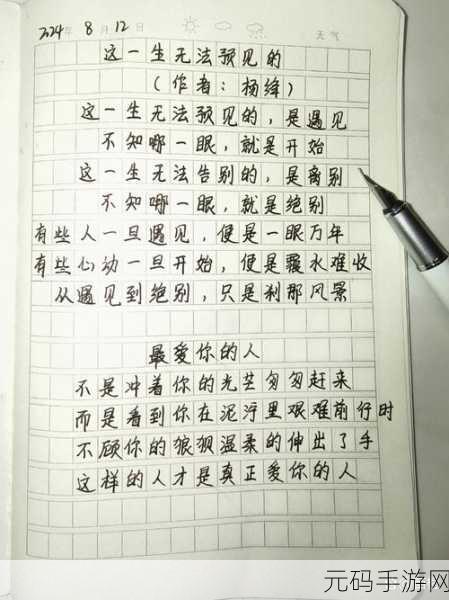 2024年 8月 12日 天气
这一生无法预见的
(作者:杨绛)
这一生无法预见的,是遇见
不知哪一眼,就是开始
这一生无法告别的,是离别
不知哪一眼,就是绝别
有些人一旦遇见,便是一眼万年
有些心动一旦开始,便是覆水难收
从遇见到绝别,只是刹那风景
最爱你的人
不是冲着你的光芒匆匆赶来
而是看到你在泥泞里艰难前行时
不顾你的狼狈温柔的伸出了手
这样的人才是真正爱你的人
元码手游网